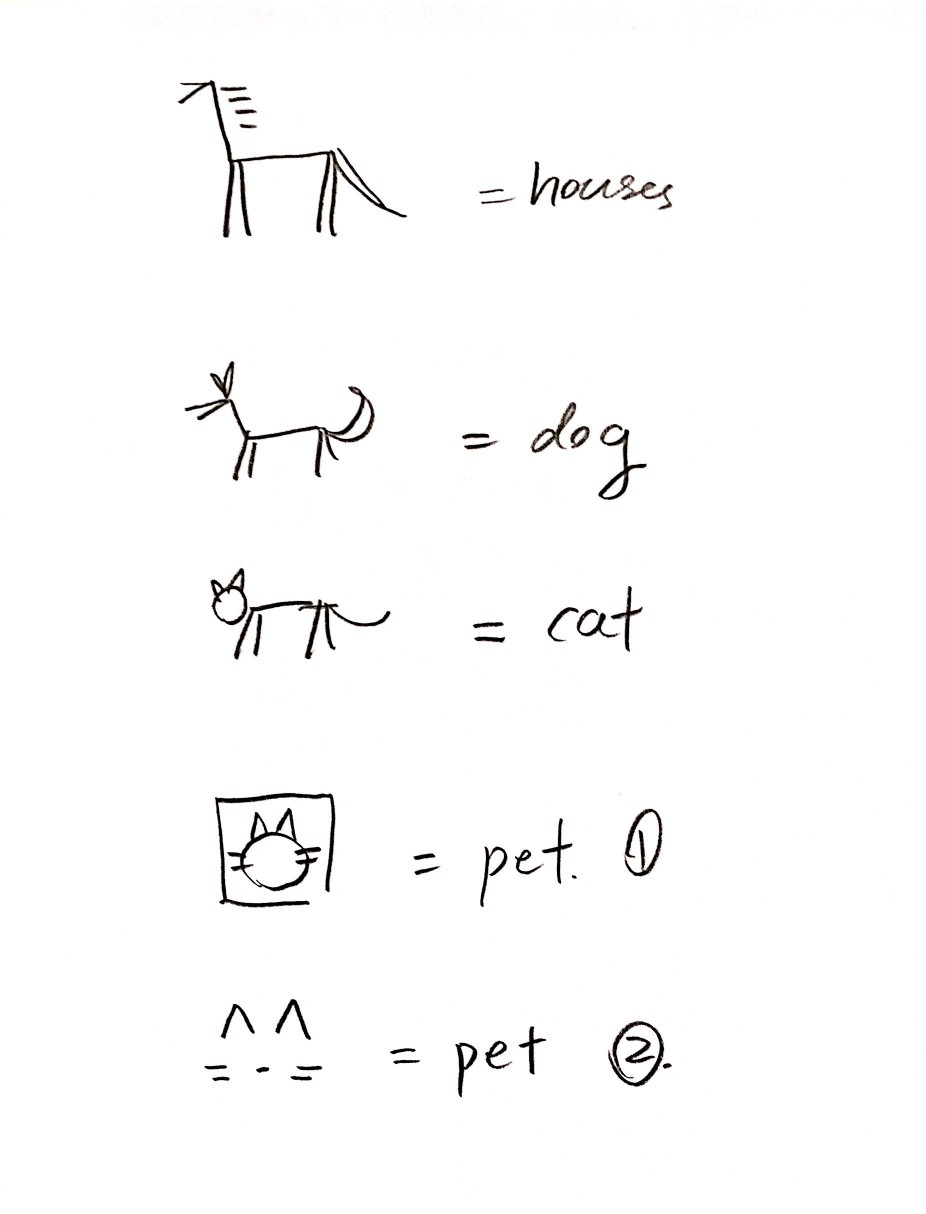 = houses
= dog
= cat
= pet. ①
= pet ②.